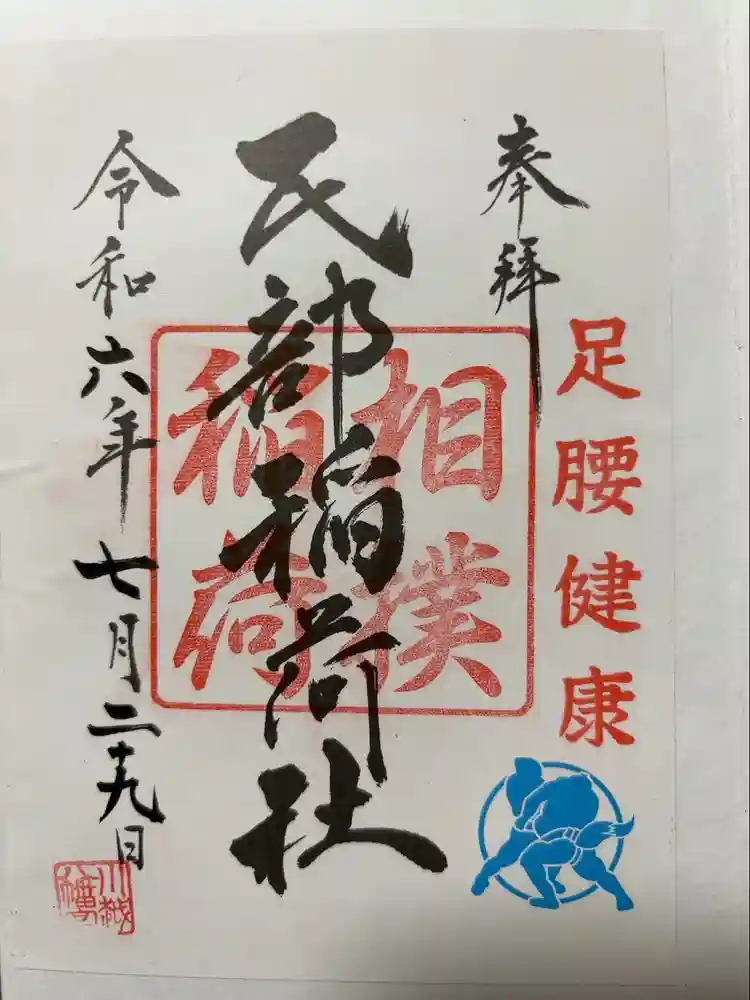 奉拝
足腰健康
相撲
稲荷
民部稲荷社
令和六年七月二十九日